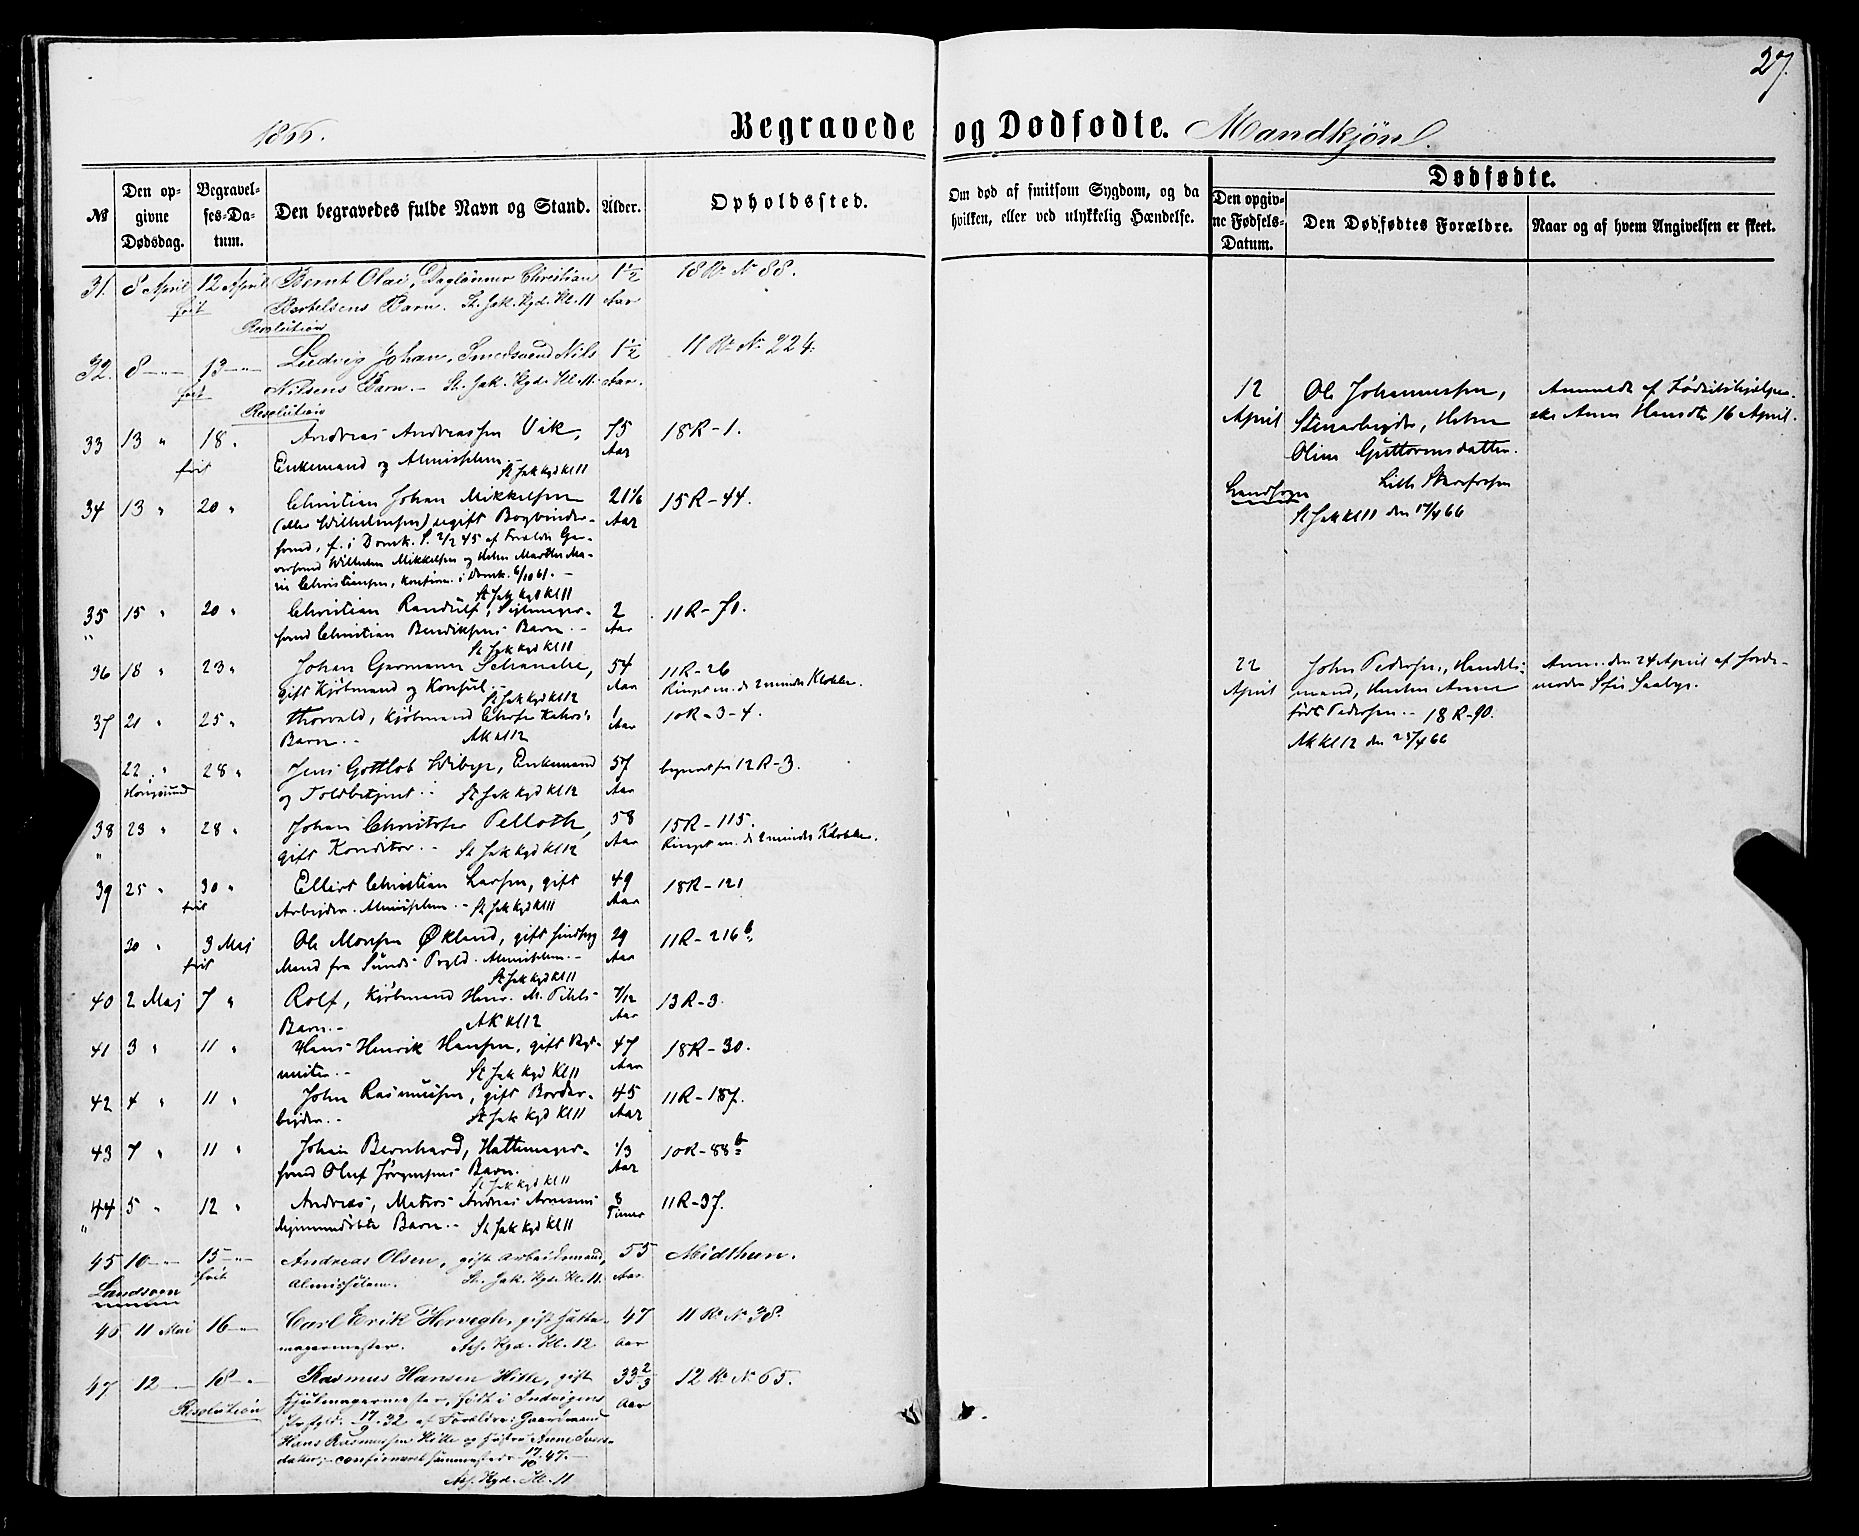 27.
1866.
Begravede og Dødfødte. Mandkjøn.
№
Den opgivne Dødsdag.
Begravelses-Datum.
Den begravedes fulde Navn og Stand.
Alder.
Opholdssted.
Om død af smitsom Sygdom, og da hvilken, eller ved ulykkelig Hændelse.
Dødfødte.
Den opgivne Fødsels-Datum.
Den Dødfødtes Forældre.
Naar og af hvem Angivelsen er skeet.
31. 8 April 12 April Bernt Olai, Daglønner Christian 1½ 18 R. N 88.
frit Bertelsens Barn. St. Jak. Kgd. Kl. 11 Aar
Resolution
32. 8 — " — 13 — " — Ludvig Johan, Smedsvend Nils 1½ 11 R. N. 224.
frit Nilsens Barn. — St. Jak. Kgd. Kl. 11. Aar.
Resolution
33 13 " 18 " Andreas Andreassen Vik, 75 18R-1.
frit Enkemand og Almisselem. — Aar
St Jak kgd kl 11
34 13 " 20 " Christian Johan Mikkelsen 21 1/6 15R-44.
(eller Wilhelmsen) ugift Bogbinder- Aar
svend, f. i Domk. S. 2/2 45 af Foræld. Gar-
versvend Wilhelm Mikkelsen og Marthe Ma-
rie Christiansen, konfirm. i Domk. 6/10 61. —
St Jak kgd kl 11
35 15 " 20 " Christian Randulf, Seilmager- 2 11R-71.
svend Christian Bendiksens Barn. — Aar
St Jak kgd kl 11
36 18 " 23 " Johan German Schanche, 54 11R-26
gift Kjøbmand og Konsul. — Aar Ringet m. de 2 mindre Klokker.
St Jak kgd kl 12
37 21 " 25 " Thorvald, Kjøbmand 1 10R-3-4.
Barn. — AK kl 12 Aar
22 " 28 " Jens Gottlob Wibye, Enkemand 57 12R-3.
og Toldbetjent. — St Jak kgd kl 12 Aar
38 23 " 28 " Johan Christofer Pelloth, 58 15R-115.
gift Konditor. — St Jak kgd kl 12 Aar Ringet m. de 2 mindre Klokker.
39 25 " 30 " Ellert Christian Larsen, gift 49 18R-121
frit Arbeider. Almisselem. — St Jak kgd kl 11 Aar
30 " 3 Maj Ole Monsen Økland, gift 29 11R-216 b.
frit Mand fra Sunds Prgld. Almisselem. — Aar
St Jak kgd kl 11
40 2 Maj 7 " Rolf, Kjøbmand Henr. M. Pihls 7/12 13R-3.
Barn. — AK kl 12 Aar
41 3 " 11 " Hans Henrik Hansen, gift 47 18R-30.
St Jak kgd kl 11 Aar
42 4 " 11 " John Rasmussen, gift Bordar- 45 11R-187.
beider. — St Jak kgd kl 11 Aar
43 7 " 11 " Johan Bernhard, Hattemager- 1/3 10R-88 b
svend Oluf Jørgensens Barn. Aar
St Jak kgd kl 11
44 5 " 12 " Andreas, Matros Andreas Arnesens 8 11R-37.
hjemmedøbte Barn. — St Jak kgd kl 11 Timer
45 10 — " — 15 — " — Andreas Olsen, gift Arbeidsmand, 55 Midthun.
Landsogn frit Almisselem. St. Jak. Kgd. Kl. 11. Aar.
46 11 Mai 16 — " — Carl Erik Hervegh, gift Hatte- 47 11 R. N. 38.
magermester. Ass. Kgd. Kl. 12 Aar
47 12 — 18 — " — Rasmus Hansen Hille, gift 33 2/3 12 R. N. 65.
Resolution Hjulmagermester, født i Indvigens Aar
Prstgld. 17/9 32 af Forældre: Gaardmand
Hans Rasmussen Hille og Hustru Anne Ivers-
datter; — confirmeret sammesteds 17/10 47. —
Ass. Kgd. Kl. 11
12 April Ole Johannesen,
Stenarbeider, Hustru
Oline Guttormsdatter.
Landsogn
St Jak kl 11 den 17/4 66
Anmeldt af Fødselshjælper-
ske Anne Hansdtr 16 April.
22 April John Pedersen, Handels-
mand, Hustru Anne
født Pedersen. — 18 R-90.
AK kl 12 den 25/4 66
Anm. den 24 April af Jorde-
moder Saabye.